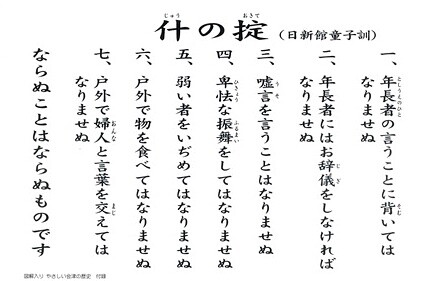 什の掟（日新館童子訓）
一、年長者の言うことに背いては
なりませぬ
二、年長者にはお辞儀をしなければ
なりませぬ
三、嘘言を言うことはなりませぬ
四、卑怯な振舞をしてはなりませぬ
五、弱い者をいぢめてはなりませぬ
六、戸外で物を食べてはなりませぬ
七、戸外で婦人と言葉を交えては
なりませぬ
ならぬことはならぬものです
図解入り やさしい会津の歴史 付録